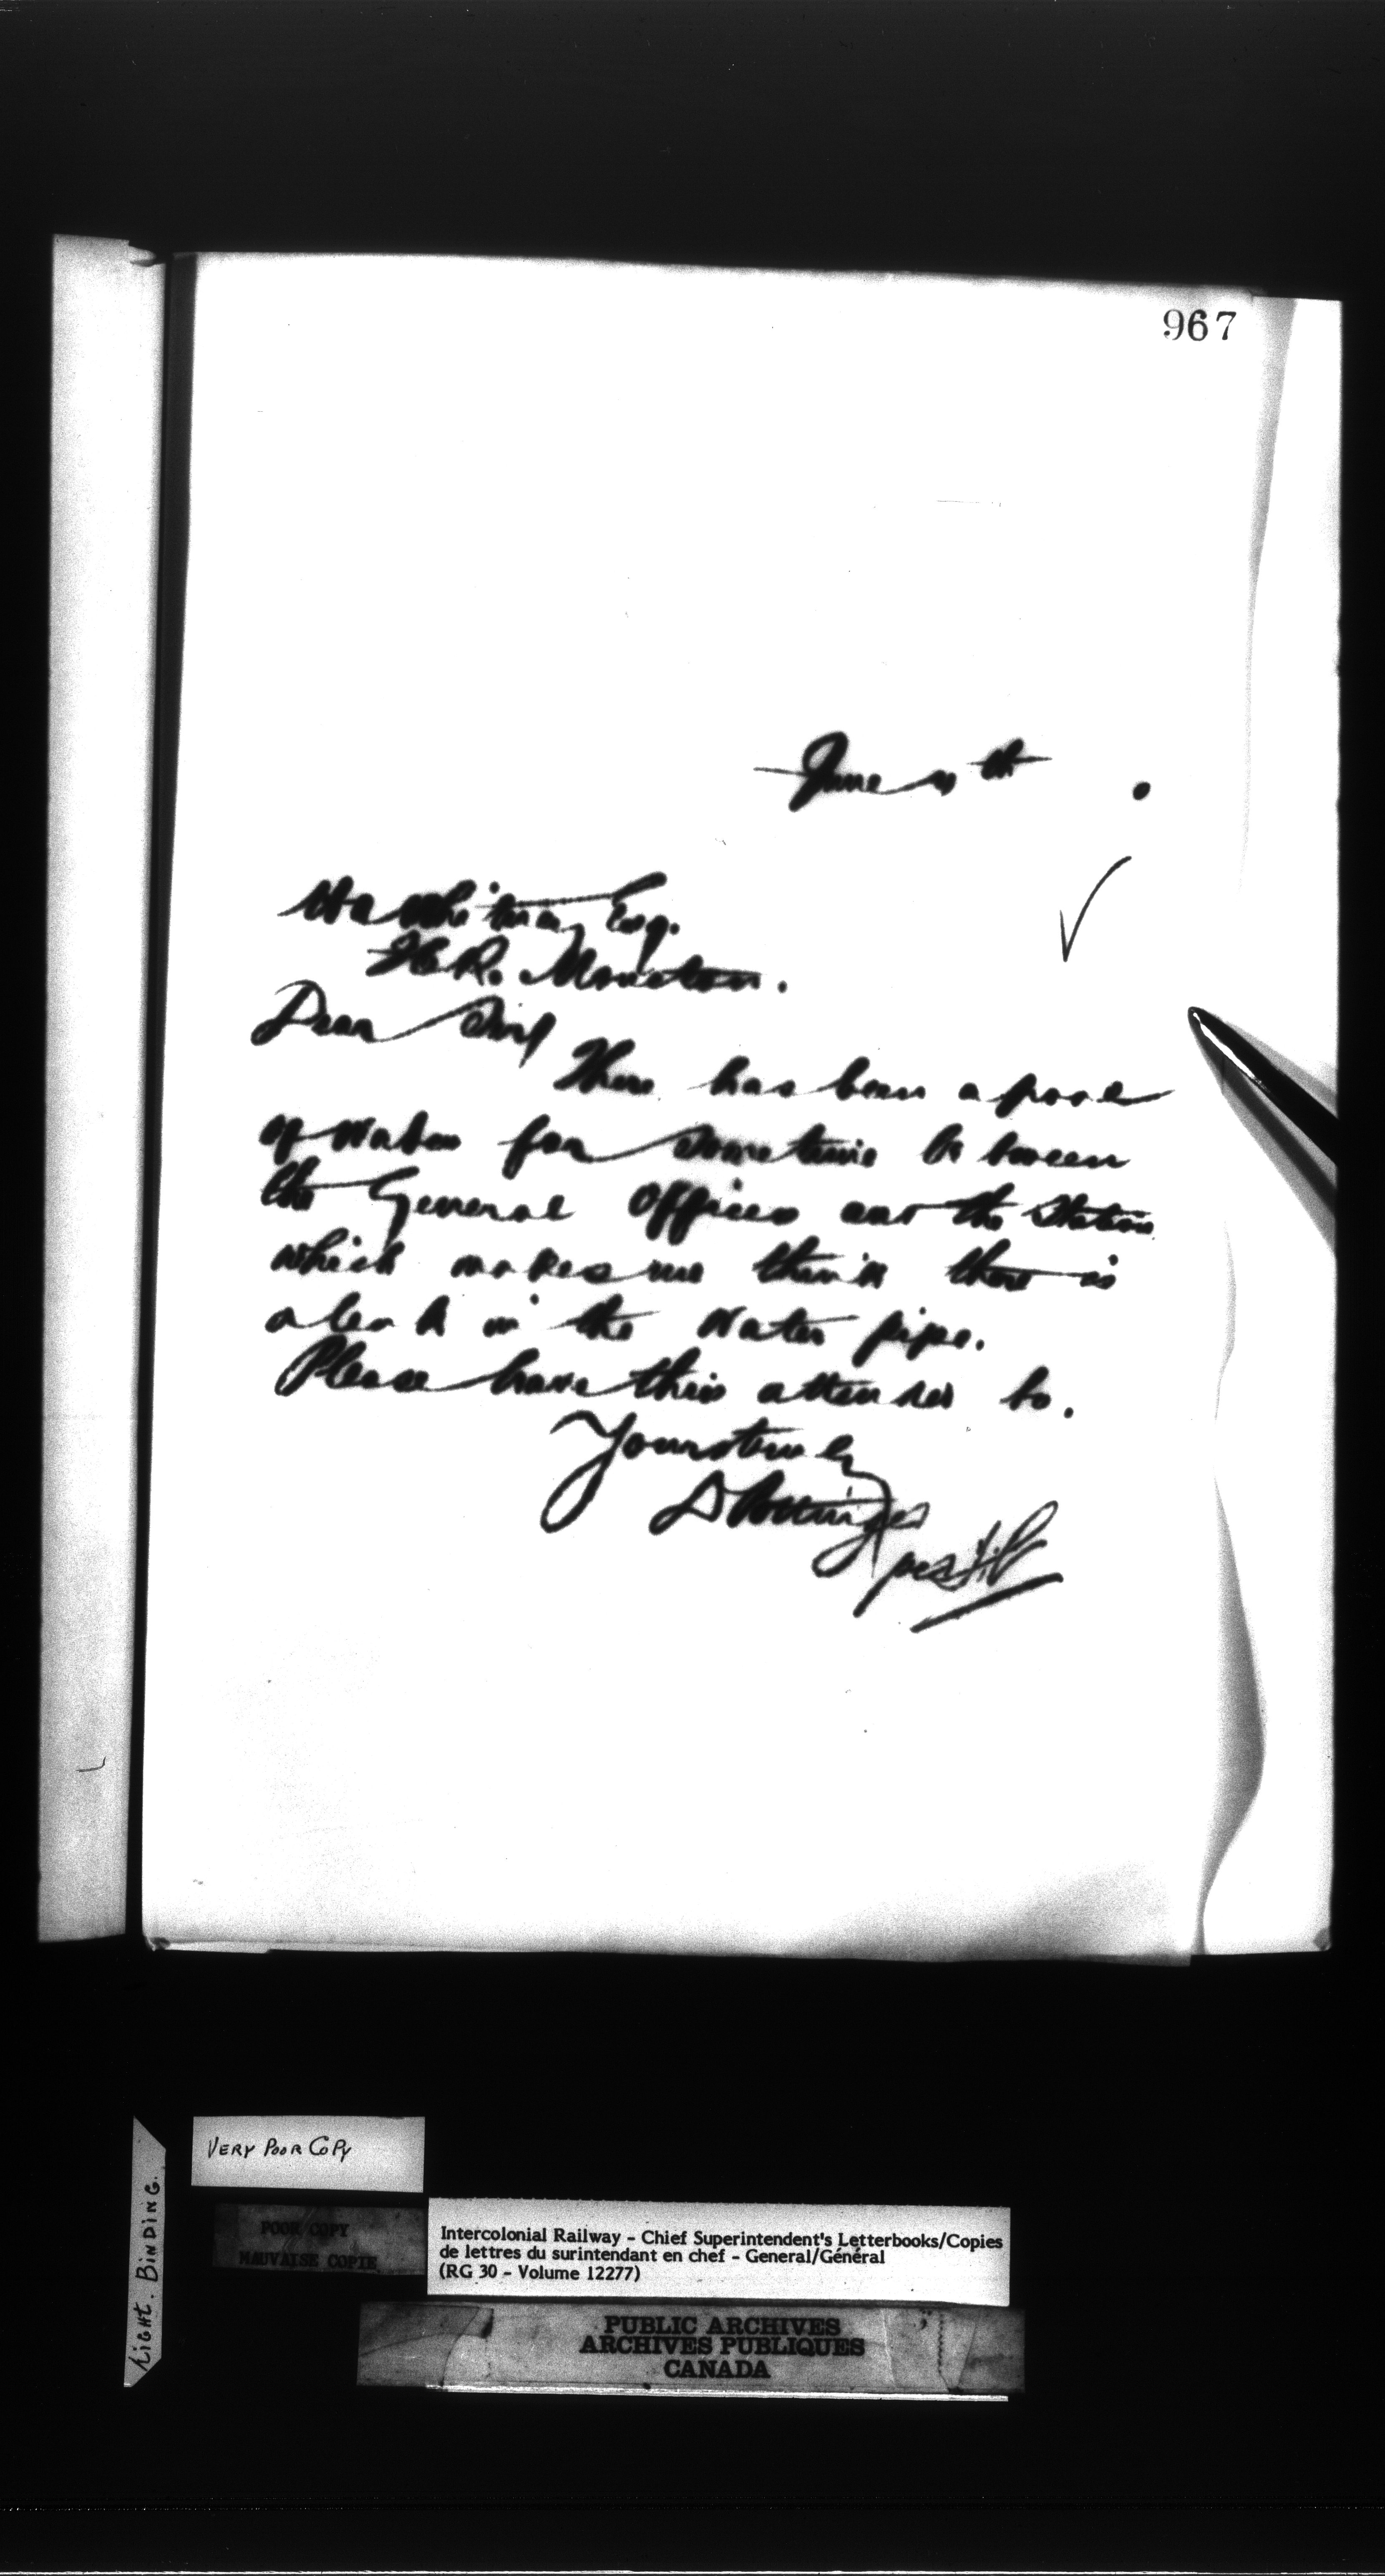 967
June th
Whitman, Esq.
I.C.R. Moncton.
Dear Sir/
There has been a pool
of water for sometime between
the General Offices and the Station
which makes me think there is
a leak in the water pipe.
Please have this attended to.
Yours truly
D Pottinger
per
VERY POOR COPY
TIGHT. BINDING.
POOR COPY
MAUVAISE COPIE
Intercolonial Railway - Chief Superintendent's Letterbooks/Copies
de lettres du surintendant en chef - General/Général
(RG 30 - Volume 12277)
PUBLIC ARCHIVES
ARCHIVES PUBLIQUES
CANADA